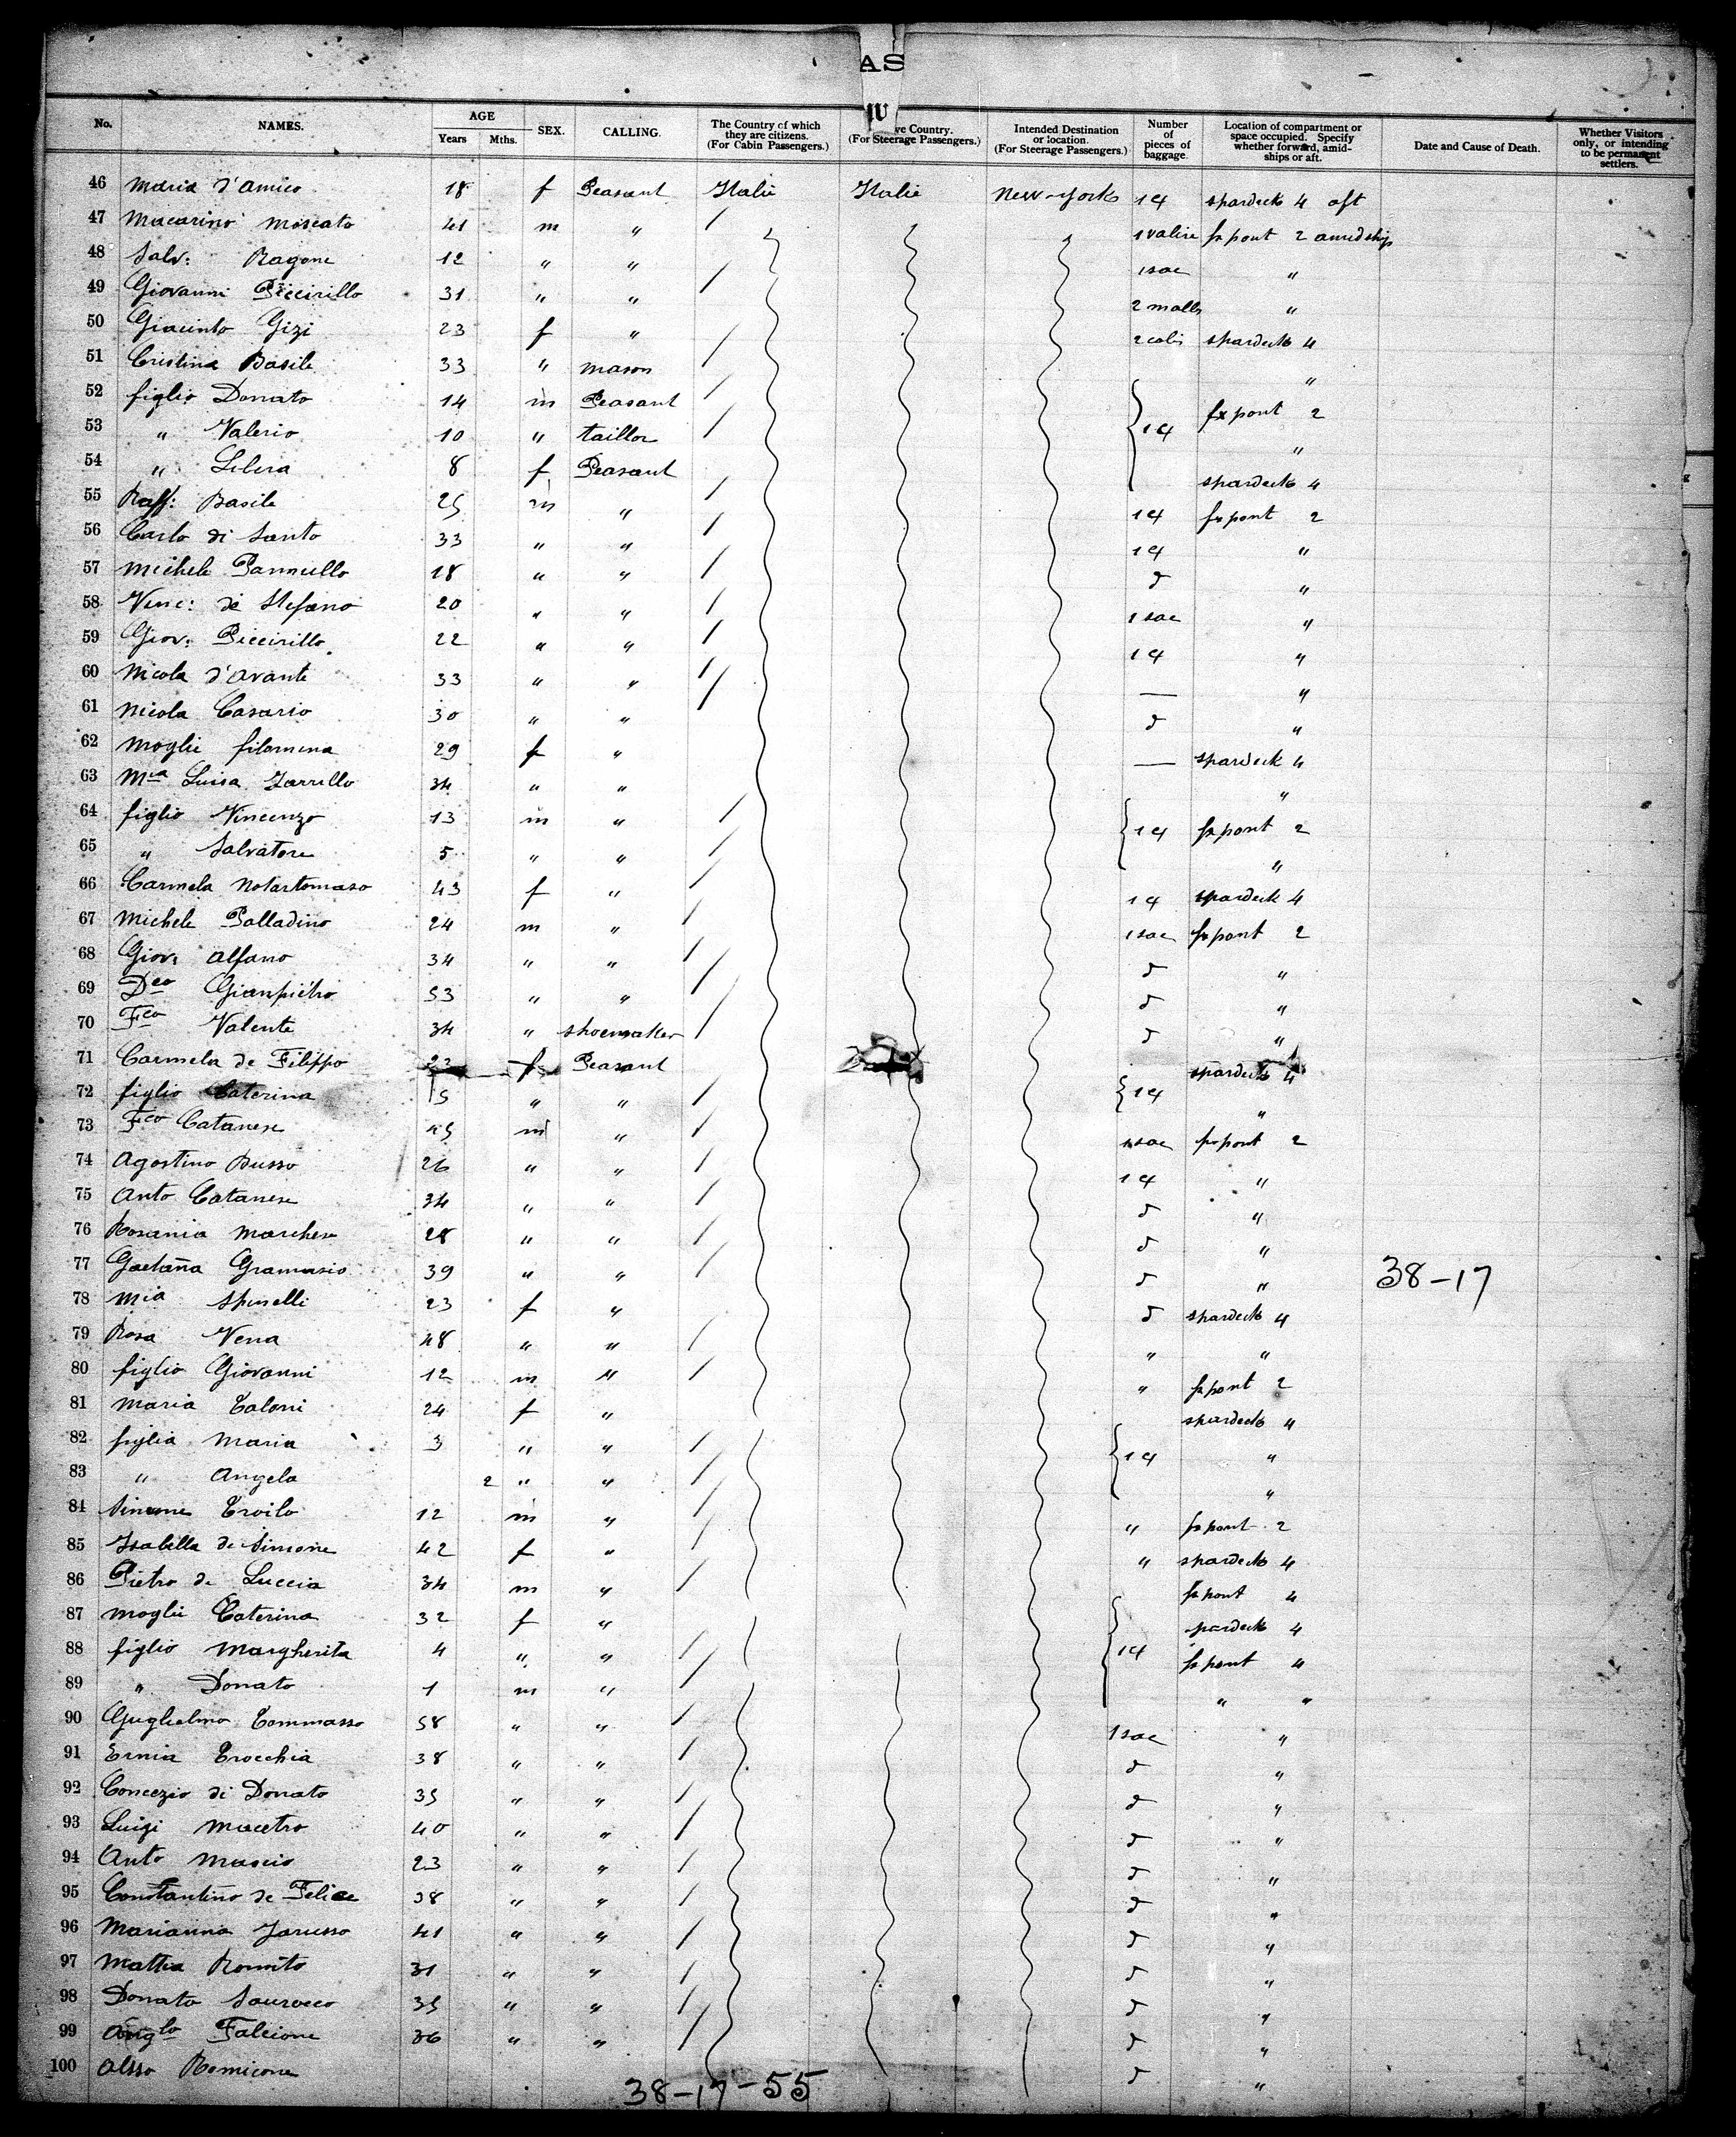 AS
IV
No. NAMES. AGE Years Mths. SEX. CALLING. The Country of which they are citizens. (For Cabin Passengers.) ve Country. (For Steerage Passengers.) Intended Destination or location. (For Steerage Passengers.) Number of pieces of baggage. Location of compartment or space occupied. Specify whether forward, amidships or aft. Date and Cause of Death. Whether Visitors only, or intending to be permanent settlers.
46 Maria d'Amico 18 f Peasant Italie Italie New-York 1 spardeck 4 aft
47 Macarino Moscato 41 m " 1 valise fxpont 2 amidship
48 Salv: Ragone 12 " " 1 sac "
49 Giovanni Piccirillo 31 " " 2 malls "
50 Giacinto Gizi 23 f " 2 colis spardeck 4
51 Cristina Basile 33 " mason "
52 figlio Donato 14 m Peasant fxpont 2
53 " Valerio 10 " taillor "
54 " Libera 8 f Peasant spardeck 4
55 Raff: Basile 25 m " fxpont 2
56 Carlo di Santo 33 " " "
57 Michele Pannullo 18 " " "
58 Vinc: di Stefano 20 " " 1 sac "
59 Giov: Piccirillo 22 " " "
60 Nicola d'Avante 33 " " — "
61 Nicola Casario 30 " " d "
62 moglie filomena 29 f " — spardeck 4
63 Mia Luisa Zarrillo 34 " " "
64 figlio Vincenzo 13 m " fxpont 2
65 " Salvatore 5 " " "
66 Carmela Notartomaso 43 f " spardeck 4
67 Michele Palladino 24 m " 1 sac fxpont 2
68 Giov: Alfano 34 " " d "
69 Dco Gianpietro 53 " " d "
70 Fco Valente 34 " shoemaker d "
71 Carmela de Filippo 23 f Peasant spardeck 4
72 figlio Caterina 5 " " "
73 Fco Catanese 45 m " 1 sac fxpont 2
74 Agostino Busso 26 " " "
75 Anto Catanese 34 " " d "
76 Rosania Marchese 28 " " d "
77 Gaetana Gramasio 39 " " d " 38-17
78 Mia Spinelli 23 f " d spardeck 4
79 Rosa Vena 48 " " " "
80 figlio Giovanni 12 m " " fxpont 2
81 Maria Taloni 24 f " spardeck 4
82 figlia Maria 3 " " "
83 " Angela 2 " " "
84 Simone Troilo 12 m " " fxpont 2
85 Isabella di Simone 42 f " " spardeck 4
86 Pietro de Luccia 34 m " fxpont 4
87 moglie Caterina 32 f " spardeck 4
88 figlio Margherita 4 " " fxpont 4
89 " Donato 1 m " " "
90 Guglielmo Tommasso 58 " " 1 sac "
91 Ernia Trocchia 38 " " d "
92 Concezio di Donato 35 " " d "
93 Luigi Macetro 40 " " d "
94 Anto Muscio 23 " " d "
95 Constantino de Felice 38 " " d "
96 Marianna Jarusso 41 " " d "
97 Mattia Romito 31 " " d "
98 Donato Saurocco 35 " " d "
99 Anglo Falcione 36 " " d "
100 Alsso Romicone d "
38-17-55